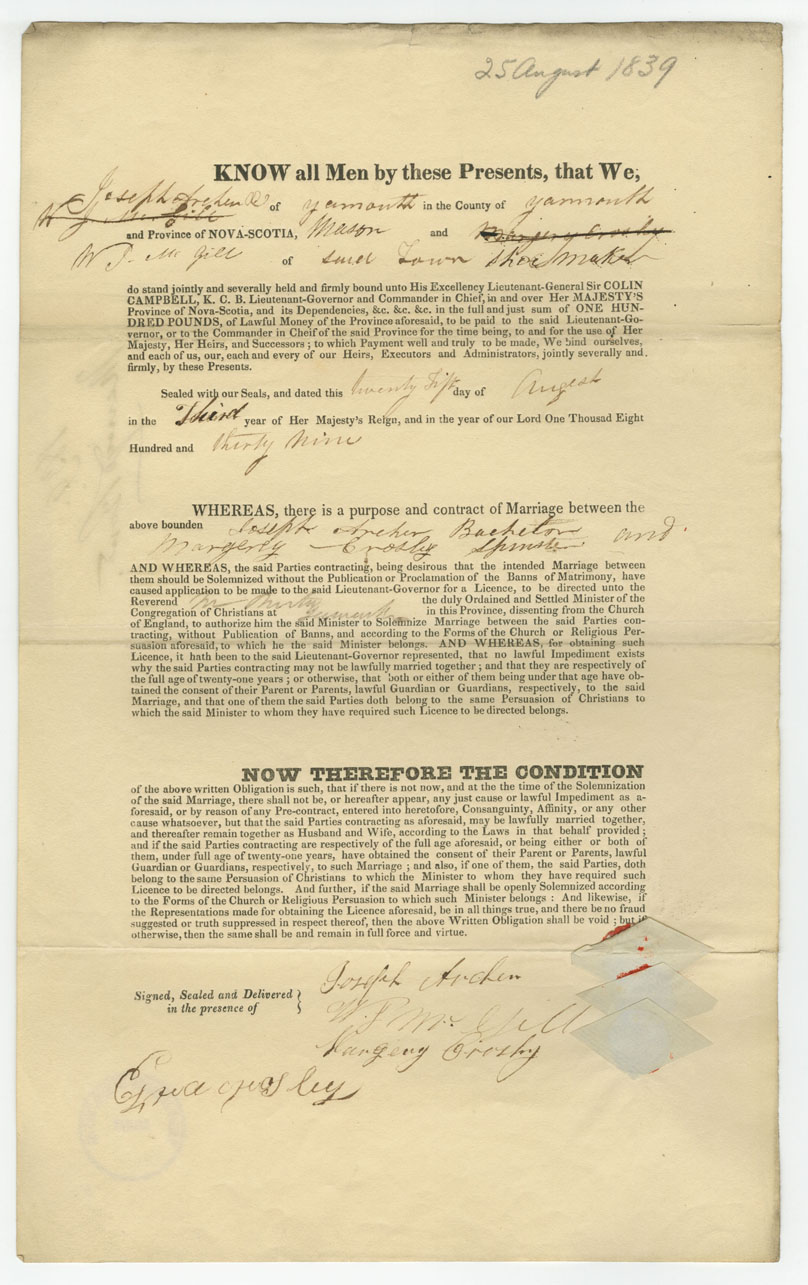 25 August 1839
KNOW all Men by these Presents, that We,
Joseph Archer of yarmouth in the County of yarmouth
W J McGill
and Province of NOVA-SCOTIA, Mason and Margery Crosby
W J McGill of said Town Shoe Maker
do stand jointly and severally held and firmly bound unto His Excellency Lieutenant-General Sir COLIN
CAMPBELL, K. C. B. Lieutenant-Governor and Commander in Chief, in and over Her MAJESTY'S
Province of Nova-Scotia, and its Dependencies, &c. &c. &c. in the full and just sum of ONE HUN-
DRED POUNDS, of Lawful Money of the Province aforesaid, to be paid to the said Lieutenant-Go-
vernor, or to the Commander in Cheif of the said Province for the time being, to and for the use of Her
Majesty, Her Heirs, and Successors ; to which Payment well and truly to be made, We bind ourselves,
and each of us, our, each and every of our Heirs, Executors and Administrators, jointly severally and
firmly, by these Presents.
Sealed with our Seals, and dated this twenty Fifth day of August
in the Third year of Her Majesty's Reign, and in the year of our Lord One Thousad Eight
Hundred and thirty Nine
WHEREAS, there is a purpose and contract of Marriage between the
above bounden Joseph Archer Bachelor and
Margerey Crosby Spinster
AND WHEREAS, the said Parties contracting, being desirous that the intended Marriage between
them should be Solemnized without the Publication or Proclamation of the Banns of Matrimony, have
caused application to be made to the said Lieutenant-Governor for a Licence, to be directed unto the
Reverend the duly Ordained and Settled Minister of the
Congregation of Christians at in this Province, dissenting from the Church
of England, to authorize him the said Minister to Solemnize Marriage between the said Parties con-
tracting, without Publication of Banns, and according to the Forms of the Church or Religious Per-
suasion aforesaid, to which he the said Minister belongs. AND WHEREAS, for obtaining such
Licence, it hath been to the said Lieutenant-Governor represented, that no lawful Impediment exists
why the said Parties contracting may not be lawfully married together ; and that they are respectively of
the full age of twenty-one years ; or otherwise, that both or either of them being under that age have ob-
tained the consent of their Parent or Parents, lawful Guardian or Guardians, respectively, to the said
Marriage, and that one of them the said Parties doth belong to the same Persuasion of Christians to
which the said Minister to whom they have required such Licence to be directed belongs.
NOW THEREFORE THE CONDITION
of the above written Obligation is such, that if there is not now, and at the the time of the Solemnization
of the said Marriage, there shall not be, or hereafter appear, any just cause or lawful Impediment as a-
foresaid, or by reason of any Pre-contract, entered into heretofore, Consanguinty, Affinity, or any other
cause whatsoever, but that the said Parties contracting as aforesaid, may be lawfully married together,
and thereafter remain together as Husband and Wife, according to the Laws in that behalf provided ;
and if the said Parties contracting are respectively of the full age aforesaid, or being either or both of
them, under full age of twenty-one years, have obtained the consent of their Parent or Parents, lawful
Guardian or Guardians, respectively, to such Marriage ; and also, if one of them, the said Parties, doth
belong to the same Persuasion of Christians to which the Minister to whom they have required such
Licence to be directed belongs. And further, if the said Marriage shall be openly Solemnized according
to the Forms of the Church or Religious Persuasion to which such Minister belongs : And likewise, if
the Representations made for obtaining the Licence aforesaid, be in all things true, and there be no fraud
suggested or truth suppressed in respect thereof, then the above Written Obligation shall be void ; but if
otherwise, then the same shall be and remain in full force and virtue.
Signed, Sealed and Delivered
in the presence of
Joseph Archer
W J McGill
Margery Crosby
Crosby